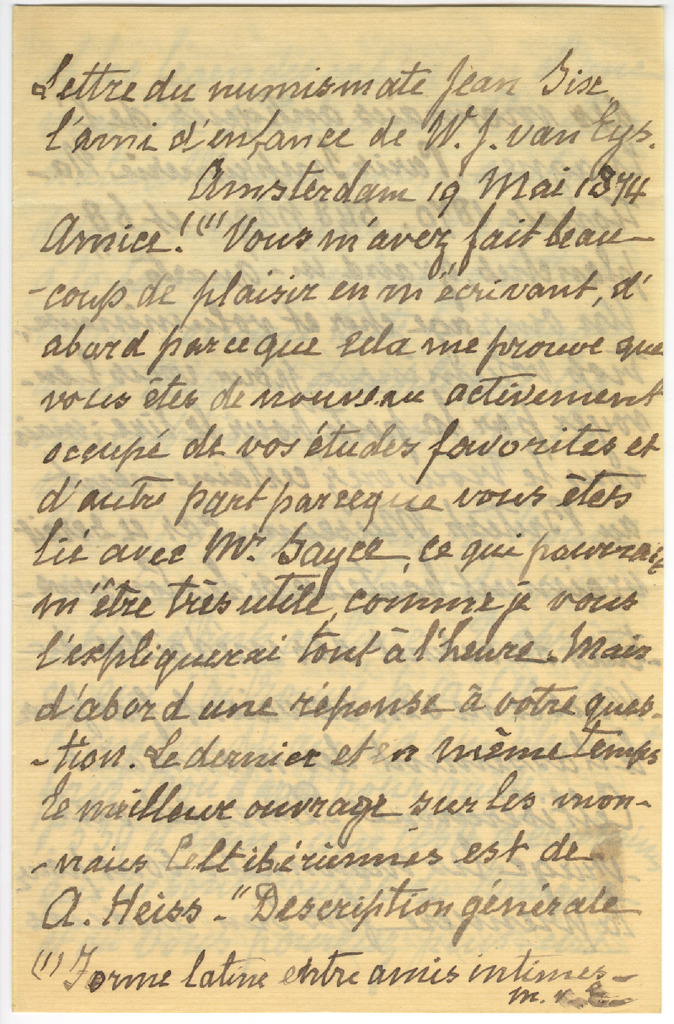 Lettre du numismate Jean Six,
l'ami d'enfance de W. J. van Eys.
Amsterdam 19 Mai 1874
Amice! (1) Vous m'avez fait beau-
-coup de plaisir en m'écrivant, d'
abord parceque cela me prouve que
vous êtes de nouveau activement
occupé de vos études favorites et
d'autre part parceque vous êtes
lié avec Mr. Sayce, ce qui pourrait
m'être très utile, comme je vous
l'expliquerai tout à l'heure. Mais
d'abord une réponse à votre ques-
-tion. Le dernier et en même temps
le meilleur ouvrage sur les mon-
-naies Celtibériennes est de
A. Heiss. "Description générale
(1) Forme latine entre amis intimes.
M. v. E.